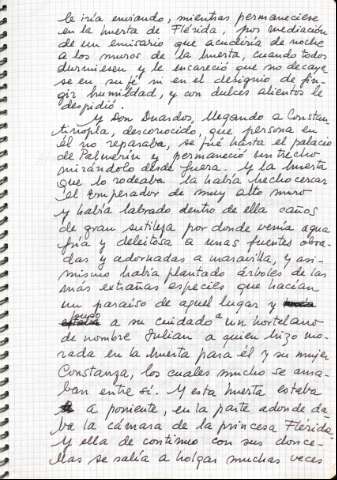 le iría enviando, mientras permaneciese
en la huerta de Flérida, por mediación
de un emisario que acudiría de noche
a los muros de la huerta, cuando todos
durmiesen y le encareció que no decaye
se en su fe ni en el designio de fin
gir humildad, y con dulces alientos le
despidió.
Y Don Duardos, llegando a Constan
tinopla, desconocido, que persona en
él no reparaba, se fué hasta el palacio
de Palmerín y permaneció un trecho
mirándolo desde fuera. Y la huerta
que lo rodeaba la había hecho cercar
el emperador de muy alto muro
y había labrado dentro de ella caños
de gran sutileza por donde venía agua
fría y deleitosa a unas fuentes obra-
das y adornadas a maravilla, y asi-
mismo había plantado árboles de las
más extrañas especies que hacían
un paraíso de aquel lugar y
puso a su cuidado a un hortelano
de nombre Julián a quien hizo mo-
rada en la huerta para él y su mujer
Constanza, los cuales mucho se ama-
ban entre sí. Y esta huerta estaba
a poniente, en la parte adonde da-
ba la cámara de la princesa Flérida.
Y ella de contínuo con sus donce-
llas se salía a holgar muchas veces